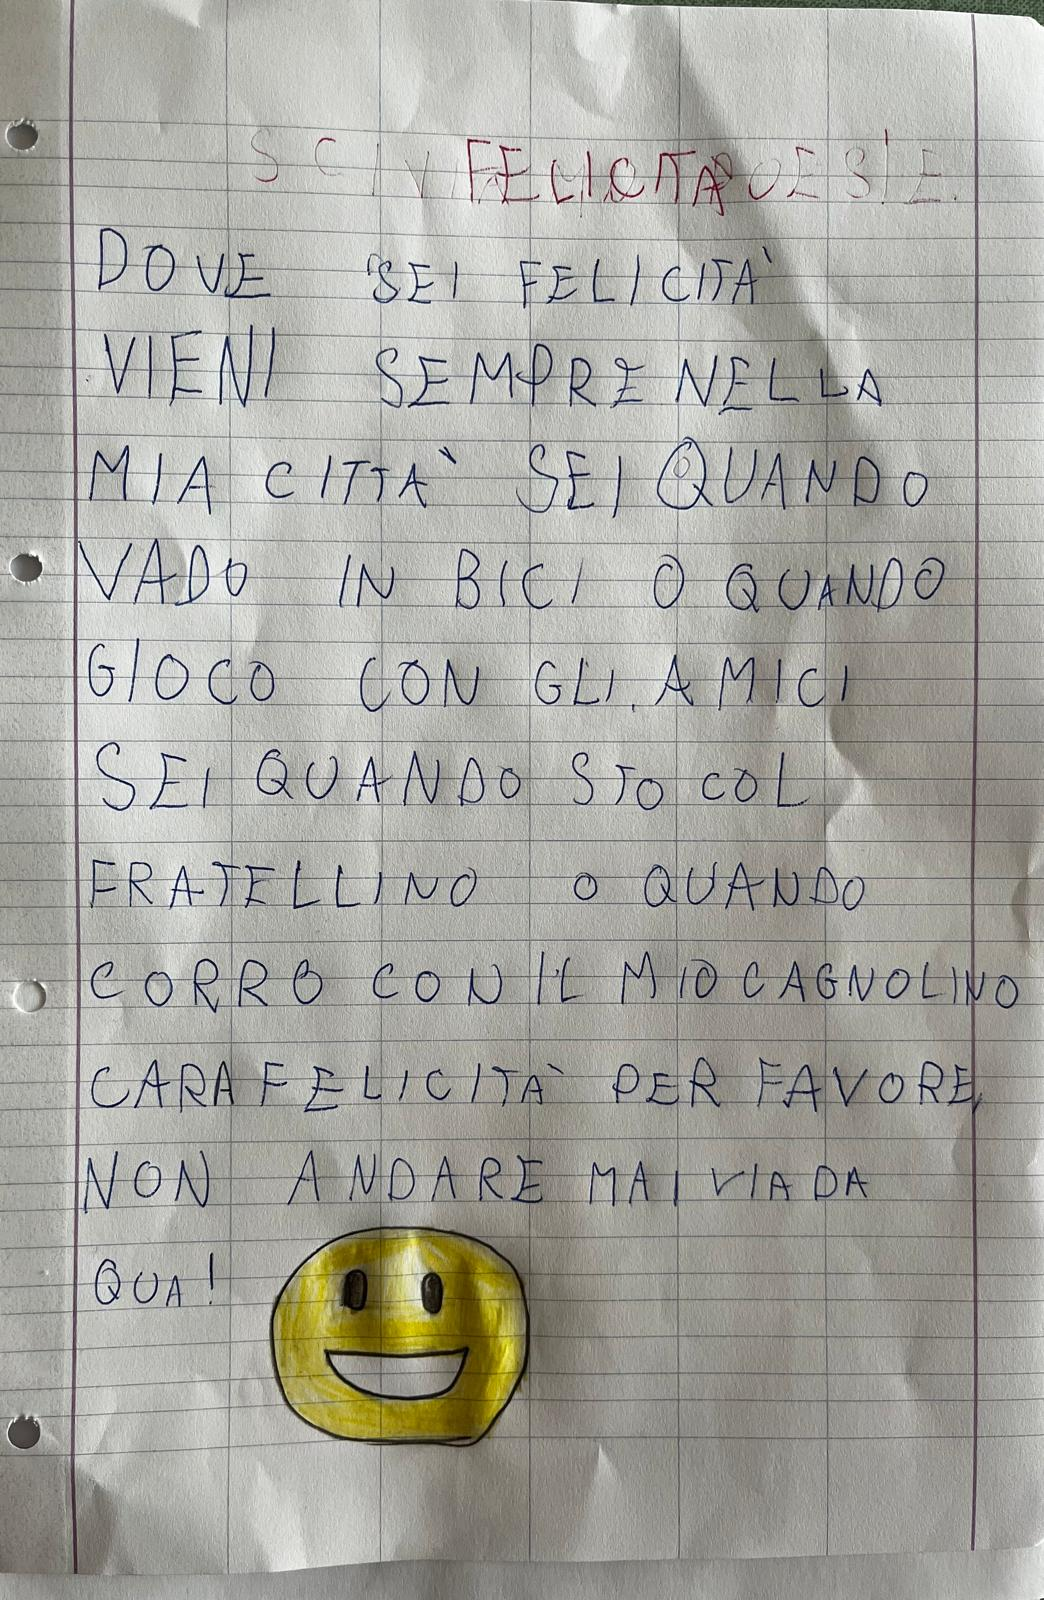 FELICITA
DOVE SEI FELICITÀ
VIENI SEMPRE NELLA
MIA CITTÀ SEI QUANDO
VADO IN BICI O QUANDO
GIOCO CON GLI AMICI
SEI QUANDO STO COL
FRATELLINO O QUANDO
CORRO CON IL MIO CAGNOLINO
CARA FELICITÀ PER FAVORE,
NON ANDARE MAI VIA DA
QUA!